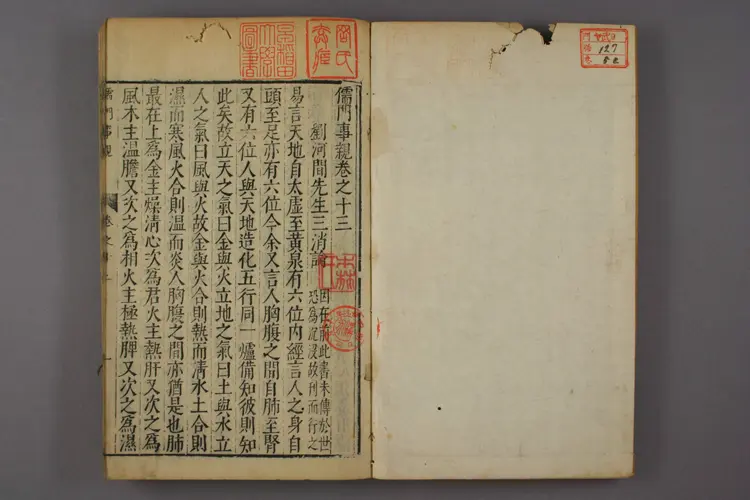 儒門事親卷之十三
劉河間先生三消論
因在前此書未傳於世
恐爲沉浸故刊而行之
易言天地自太虛至黃泉有六位內經言人之身自
頭至足亦有六位今余又言人胸腹之間自肺至腎
又有六位人與天地造化五行同一爐備知彼則知
此矣故立天之氣曰金與火立地之氣曰土與水立
人之氣曰風與火故金與火合則熱而清水土合則
濕而寒風火合則溫而炎人胸腹之間亦猶是也肺
最在上爲金主燥清心次爲君火主熱肝又次之爲
風木主溫膽又次之爲相火主極熱脾又次之爲濕
儒門事親
127